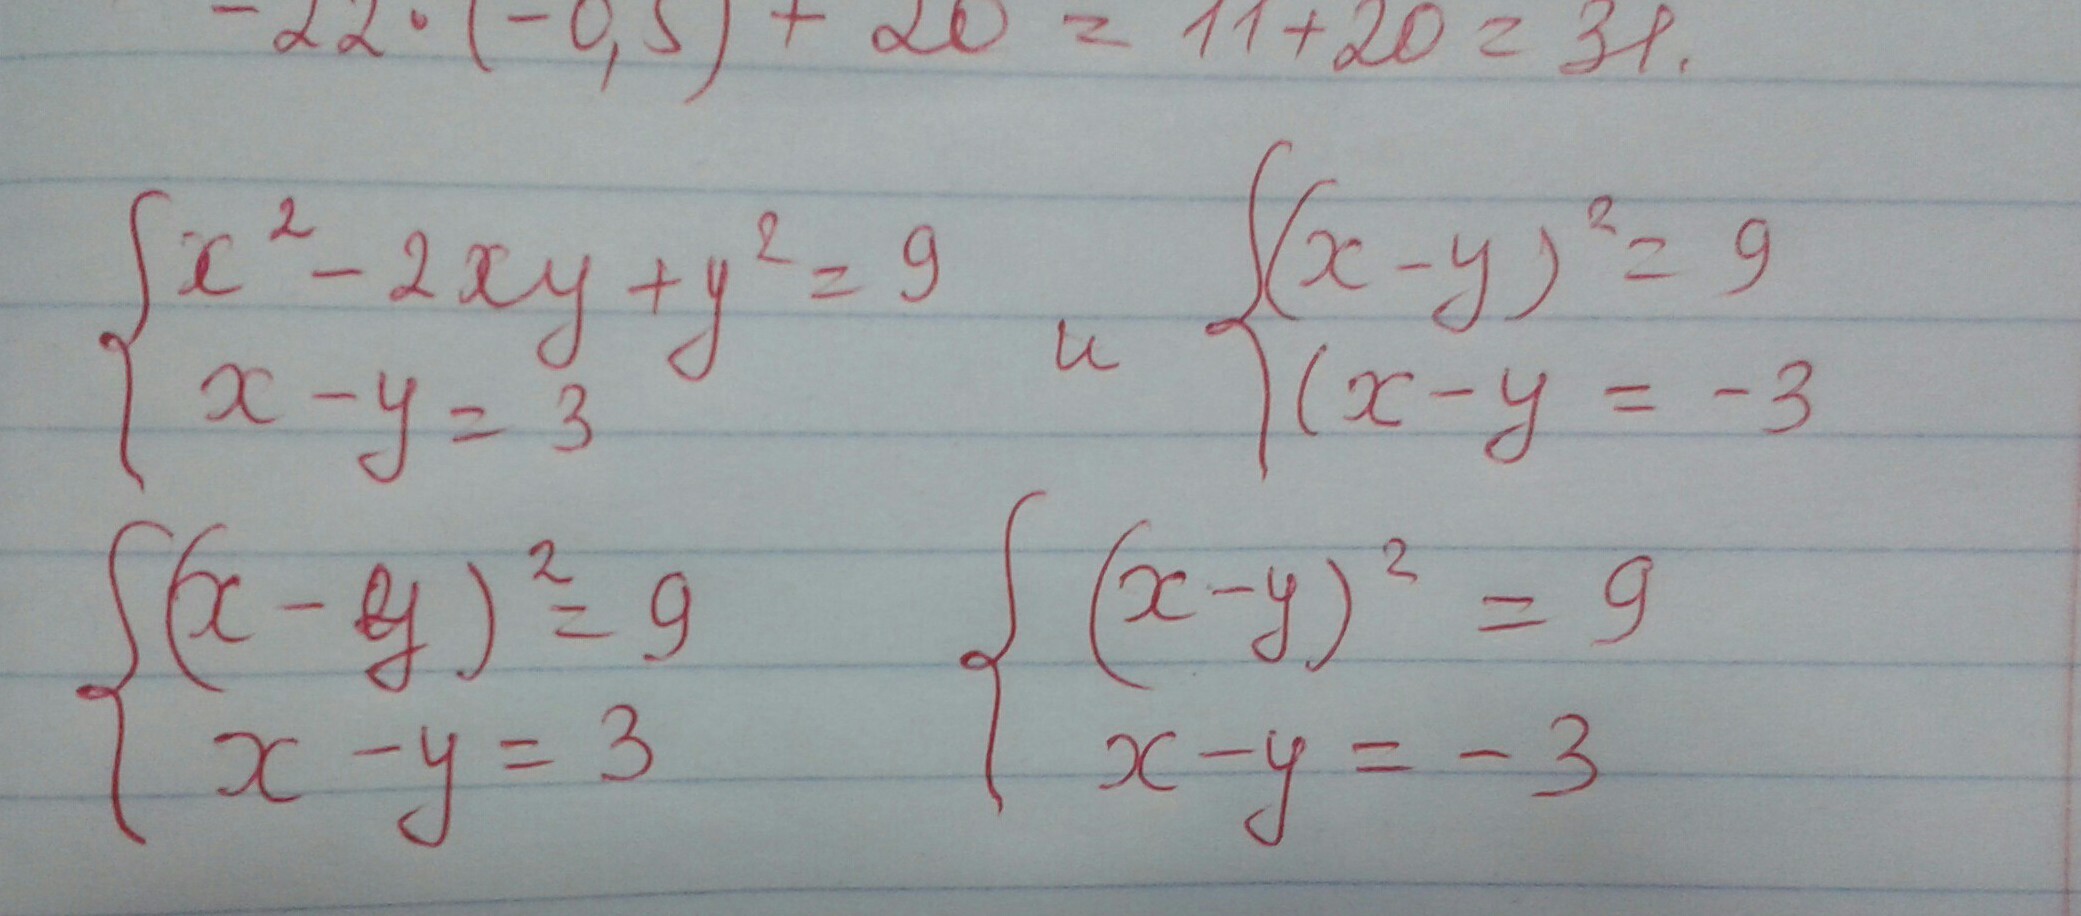 -22·(-0,5) + 20 = 11+20 = 31.
{x² - 2xy + y² = 9 и {(x-y)² = 9
x - y = 3 (x - y = -3
{(x - y)² = 9 {(x-y)² = 9
x - y = 3 x - y = -3